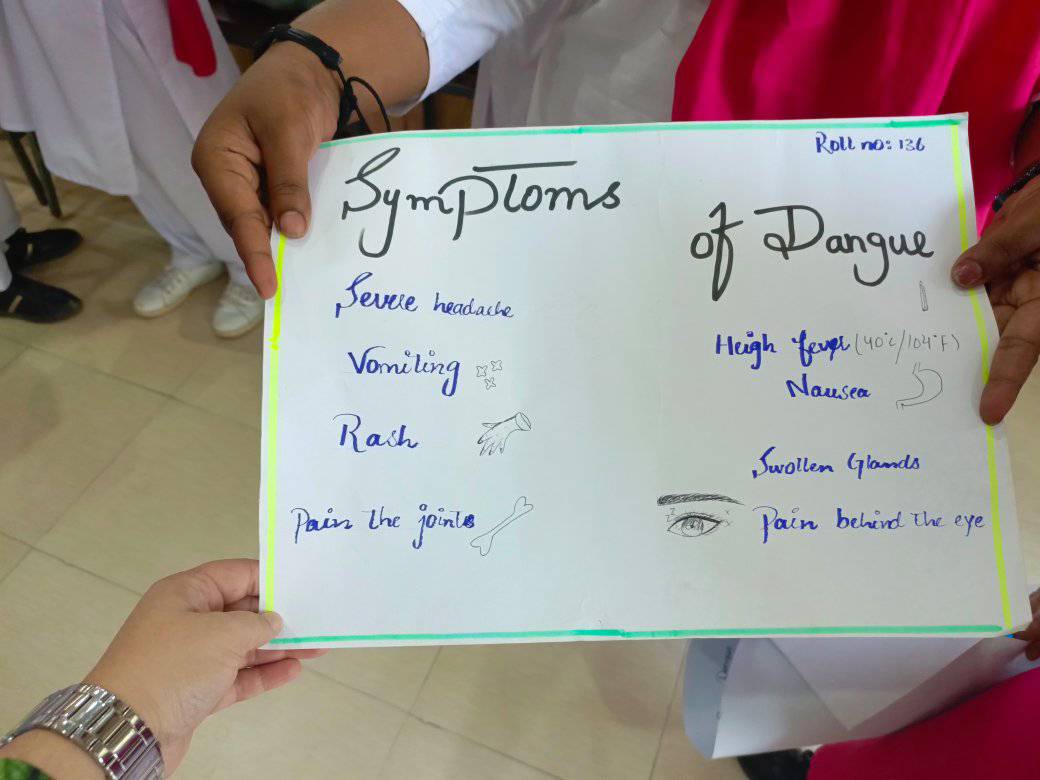 Roll no: 136
Symptoms
of Dangue
Severe headache
Vomiting
Rash
Pain the joints
Heigh fever (40°c/104°F)
Nausea
Swollen Glands
Pain behind the eye